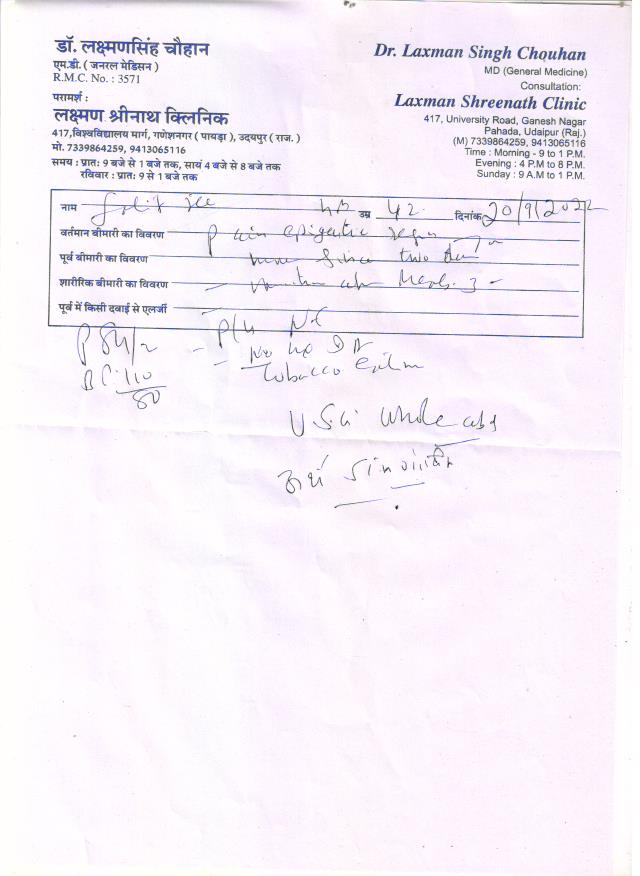 डॉ. लक्ष्मणसिंह चौहान
एम.डी. ( जनरल मेडिसन )
R.M.C. No. : 3571
परामर्श :
लक्ष्मण श्रीनाथ क्लिनिक
417,विश्वविद्यालय मार्ग, गणेशनगर ( पायड़ा ), उदयपुर ( राज. )
मो. 7339864259, 9413065116
समय : प्रातः 9 बजे से 1 बजे तक, सायं 4 बजे से 8 बजे तक
रविवार : प्रातः 9 से 1 बजे तक
Dr. Laxman Singh Chouhan
MD (General Medicine)
Consultation:
Laxman Shreenath Clinic
417, University Road, Ganesh Nagar
Pahada, Udaipur (Raj.)
(M) 7339864259, 9413065116
Time : Morning - 9 to 1 P.M.
Evening : 4 P.M to 8 P.M.
Sunday : 9 A.M to 1 P.M.
नाम उम्र 42 दिनांक 20/9/2022
वर्तमान बीमारी का विवरण Pain epigastric region
पूर्व बीमारी का विवरण since two
शारीरिक बीमारी का विवरण
पूर्व में किसी दवाई से एलर्जी
P 84/2 - P/H
BP: 110/80 - No H/O
Tobacco
USG whole abd